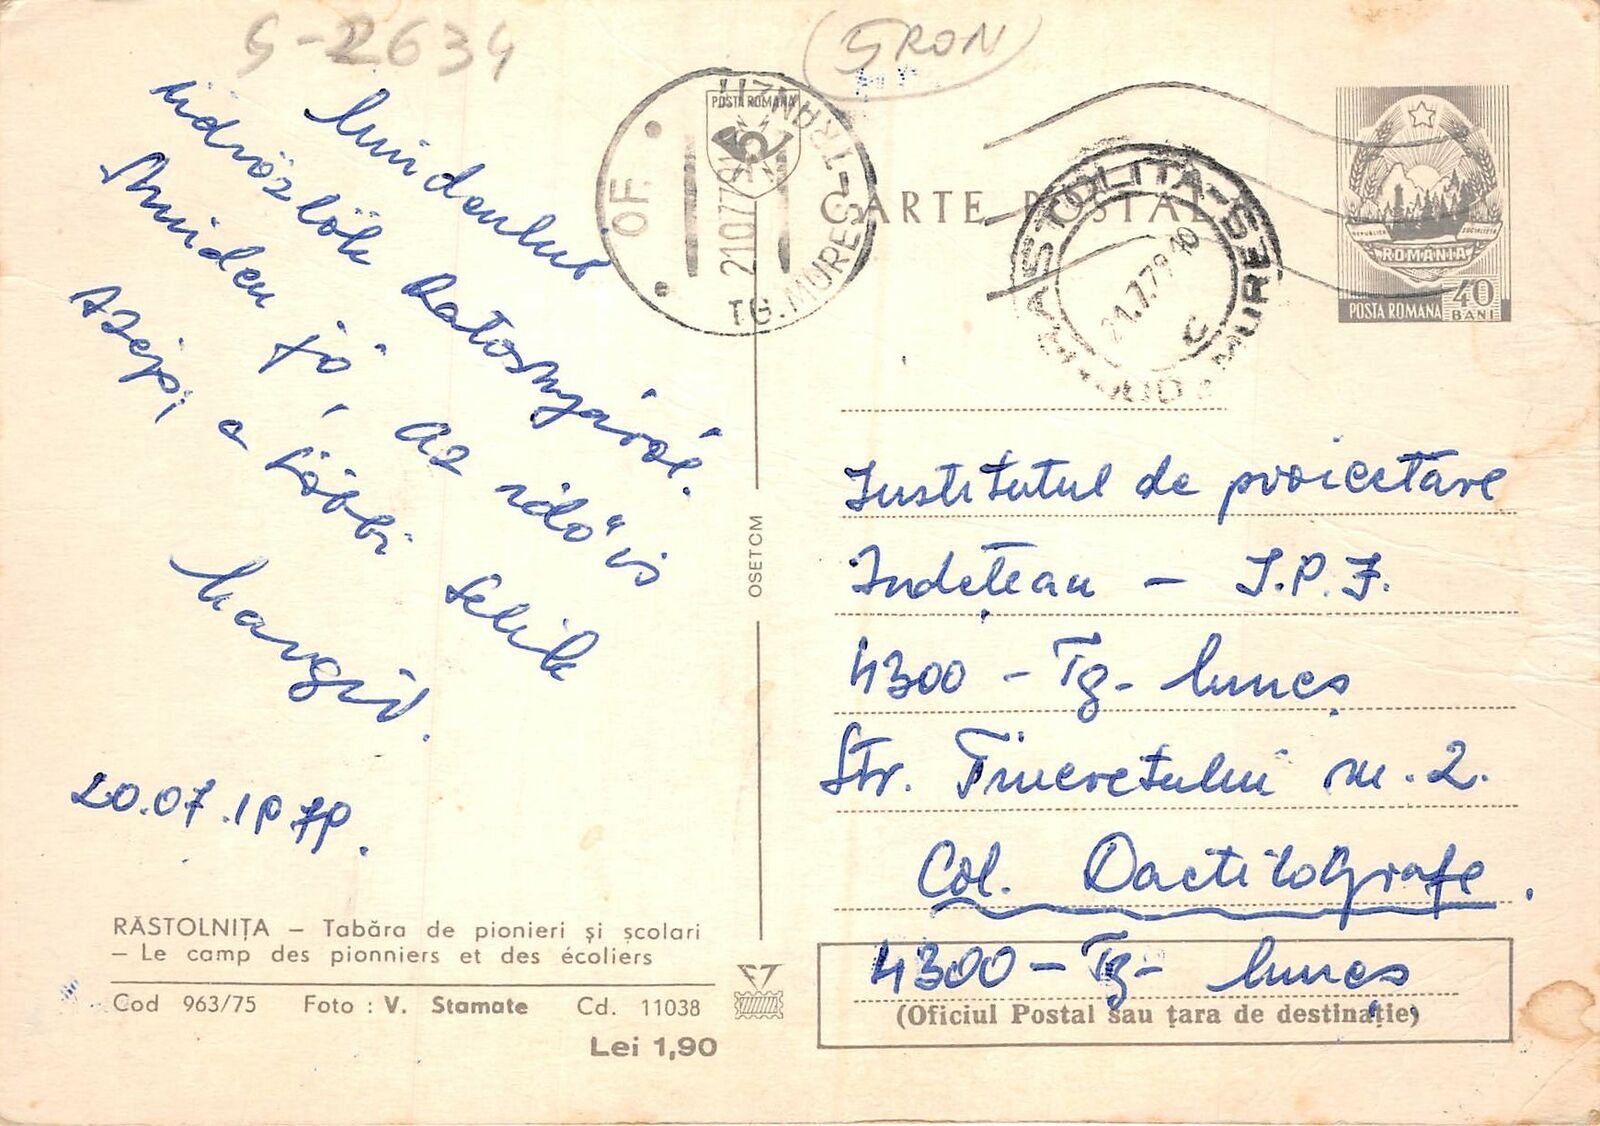 S-2634
5 RON
Mindenkit
üdvözlök Ratosnyáról.
Minden jó, az idő is
szép, a többi
Margit.
20.07.1979.
RĂSTOLNIȚA – Tabăra de pionieri și școlari
– Le camp des pionniers et des écoliers
Cod 963/75 Foto : V. Stamate Cd. 11038
Lei 1,90
OSETCM
POSTA ROMANA
TG. MUREȘ – TRANZIT
OF.
CARTE POȘTALĂ
RĂSTOLIȚA-MUREȘ
JUD. MUREȘ
21.7.79.10
C
REPUBLICA SOCIALISTA
ROMANIA
POSTA ROMANA 40 BANI
Institutul de proiectare
Județean – I.P.J.
4300 – Tg- Mureș
Str. Tineretului nr. 2.
Col. Dactilografe.
4300 – Tg- Mureș
(Oficiul Postal sau țara de destinație)